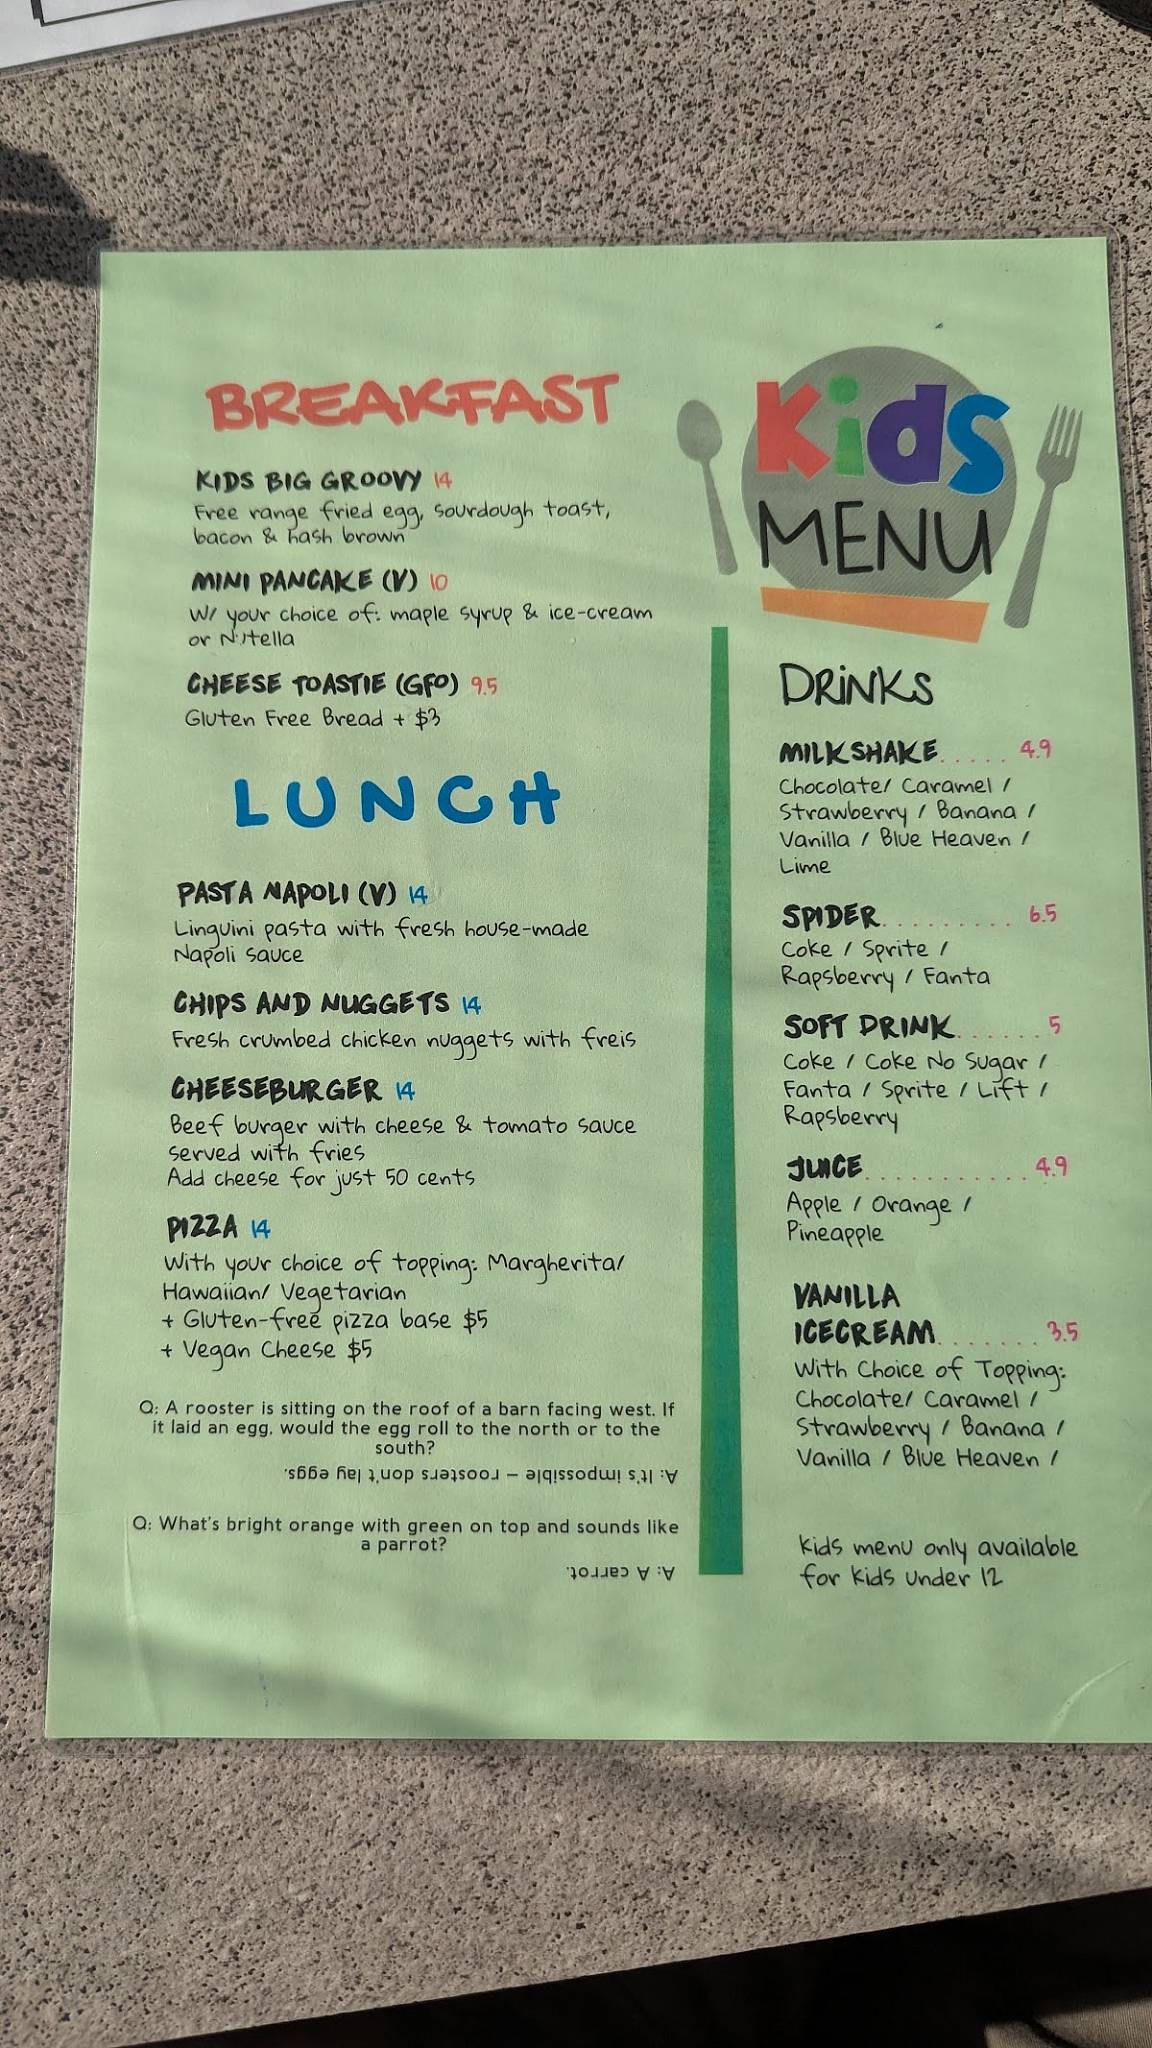 BREAKFAST
KIDS BIG GROOVY 14
Free range fried egg, sourdough toast,
bacon & hash brown
MINI PANCAKE (V) 10
W/ your choice of: maple syrup & ice-cream
or Nutella
CHEESE TOASTIE (GFO) 9.5
Gluten Free Bread + $3
LUNCH
PASTA NAPOLI (V) 14
Linguini pasta with fresh house-made
Napoli sauce
CHIPS AND NUGGETS 14
Fresh crumbed chicken nuggets with freis
CHEESEBURGER 14
Beef burger with cheese & tomato sauce
served with fries
Add cheese for just 50 cents
PIZZA 14
With your choice of topping: Margherita/
Hawaiian/ Vegetarian
+ Gluten-free pizza base $5
+ Vegan Cheese $5
Q: A rooster is sitting on the roof of a barn facing west. If
it laid an egg, would the egg roll to the north or to the
south?
A: It's impossible – roosters don't lay eggs.
Q: What's bright orange with green on top and sounds like
a parrot?
A: A carrot.
Kids
MENU
DRiNKS
MILKSHAKE..... 4.9
Chocolate/ Caramel /
Strawberry / Banana /
Vanilla / Blue Heaven /
Lime
SPIDER......... 6.5
Coke / Sprite /
Rapsberry / Fanta
SOFT DRINK...... 5
Coke / Coke No Sugar /
Fanta / Sprite / Lift /
Rapsberry
JUICE........... 4.9
Apple / Orange /
Pineapple
VANILLA
ICECREAM....... 3.5
With Choice of Topping:
Chocolate/ Caramel /
Strawberry / Banana /
Vanilla / Blue Heaven /
Kids menu only available
for kids under 12